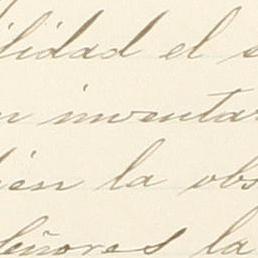 ilidad el s
n inventar
ien la obs
señores la